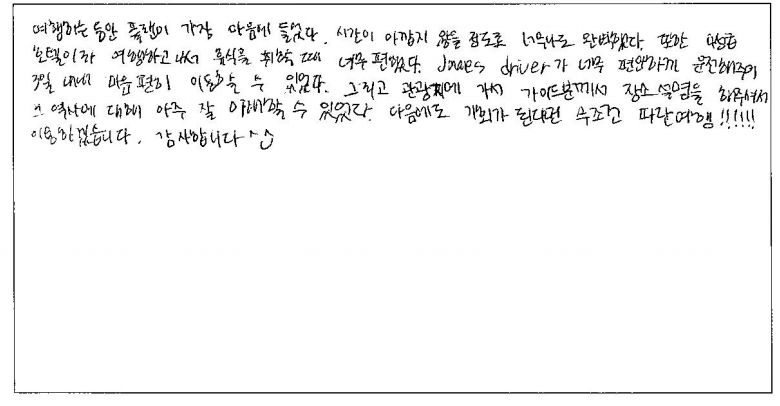 여행하는 동안 플랜이 가장 마음에 들었다. 시간이 아깝지 않을 정도로 너무나도 완벽했다. 또한
호텔이라 여행하고 나서 휴식을 취할 때 너무 편했다. James driver가 너무 편안하게 운전해주어
내내 마음 편히 이동할 수 있었다. 그리고 관광지에 가서 가이드분께서 장소 설명을 해주셔서
그 역사에 대해 아주 잘 이해할 수 있었다. 다음에도 기회가 된다면 무조건 파란여행!!!!!!
이용하겠습니다. 감사합니다^^